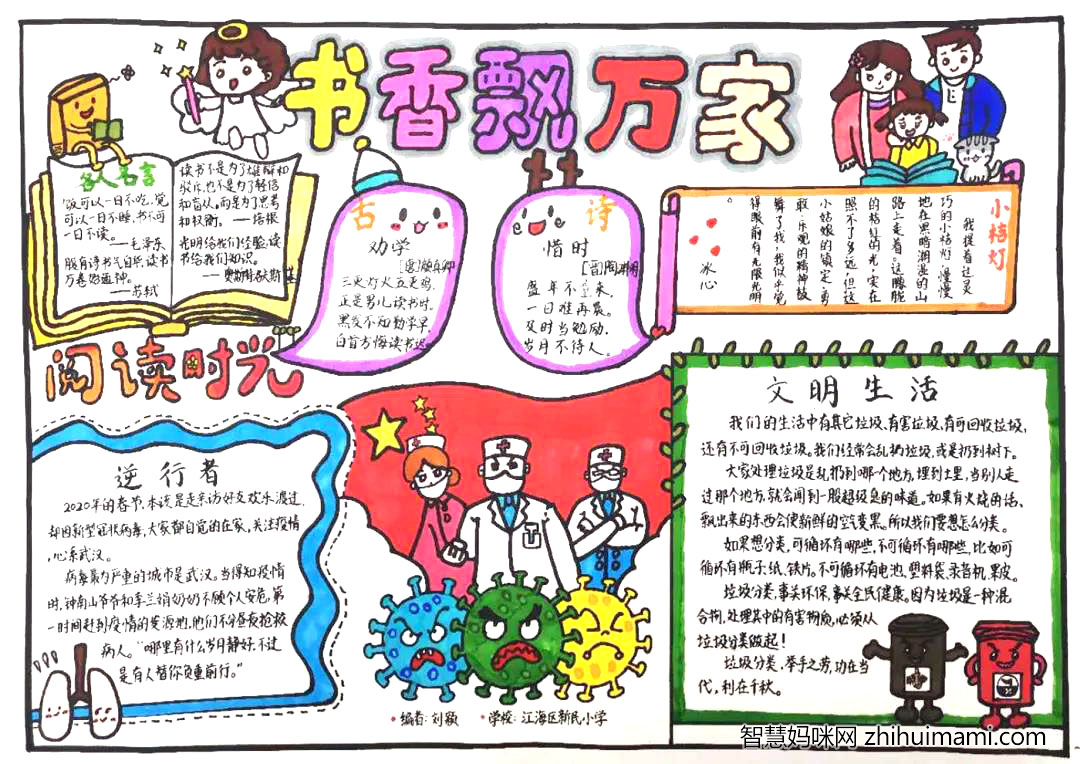 书香飘万家
名人名言
饭可以一日不吃,觉
可以一日不睡,书不可
一日不读。
——毛泽东
腹有诗书气自华,读书
万卷始通神。
——苏轼
读书不是为了雄辩和
驳斥,也不是为了轻信
和盲从,而是为了思考
和权衡。——培根
光明给我们经验,读
书给我们知识。
——奥斯特洛夫斯基
古
劝学
[唐]颜真卿
三更灯火五更鸡,
正是男儿读书时,
黑发不知勤学早,
白首方悔读书迟。
诗
惜时
[晋]陶渊明
盛年不重来,
一日难再晨。
及时当勉励,
岁月不待人。
小桔灯
我提着这灵
巧的小桔灯,慢慢
地在黑暗潮湿的山
路上走着。这朦胧
的桔红的光,实在
照不了多远,但这
小姑娘的镇定、勇
敢、乐观的精神鼓
舞了我,我似乎觉
得眼前有无限光明
。
冰心
阅读时光
逆行者
2020年的春节,本该是走亲访好友欢乐渡过,
却因新型冠状病毒,大家都自觉的在家,关注疫情
,心系武汉。
病毒最为严重的城市是武汉。当得知疫情
时,钟南山爷爷和李兰娟奶奶不顾个人安危,第
一时间赶到疫情的发源地,他们不分昼夜抢救
病人。“哪里有什么岁月静好,不过
是有人替你负重前行。”
文明生活
我们的生活中有其它垃圾,有害垃圾,有可回收垃圾,
还有不可回收垃圾。我们经常会乱扔垃圾,或是扔到树下。
大家处理垃圾是乱扔到哪个地方,埋到土里,当别人走
过那个地方,就会闻到一股超级臭的味道。如果有火烧的话,
飘出来的东西会使新鲜的空气变黑。所以我们要想怎么分类。
如果想分类,可循环有哪些,不可循环有哪些,比如可
循环有瓶子、纸、铁片。不可循环有电池、塑料袋、录音机、果皮。
垃圾分类,事关环保,事关全民健康。因为垃圾是一种混
合物,处理其中的有害物质,必须从
垃圾分类做起!
垃圾分类,举手之劳,功在当
代,利在千秋。
编者:刘颖
学校:江海区新民小学
智慧妈咪网 zhihuimami.com